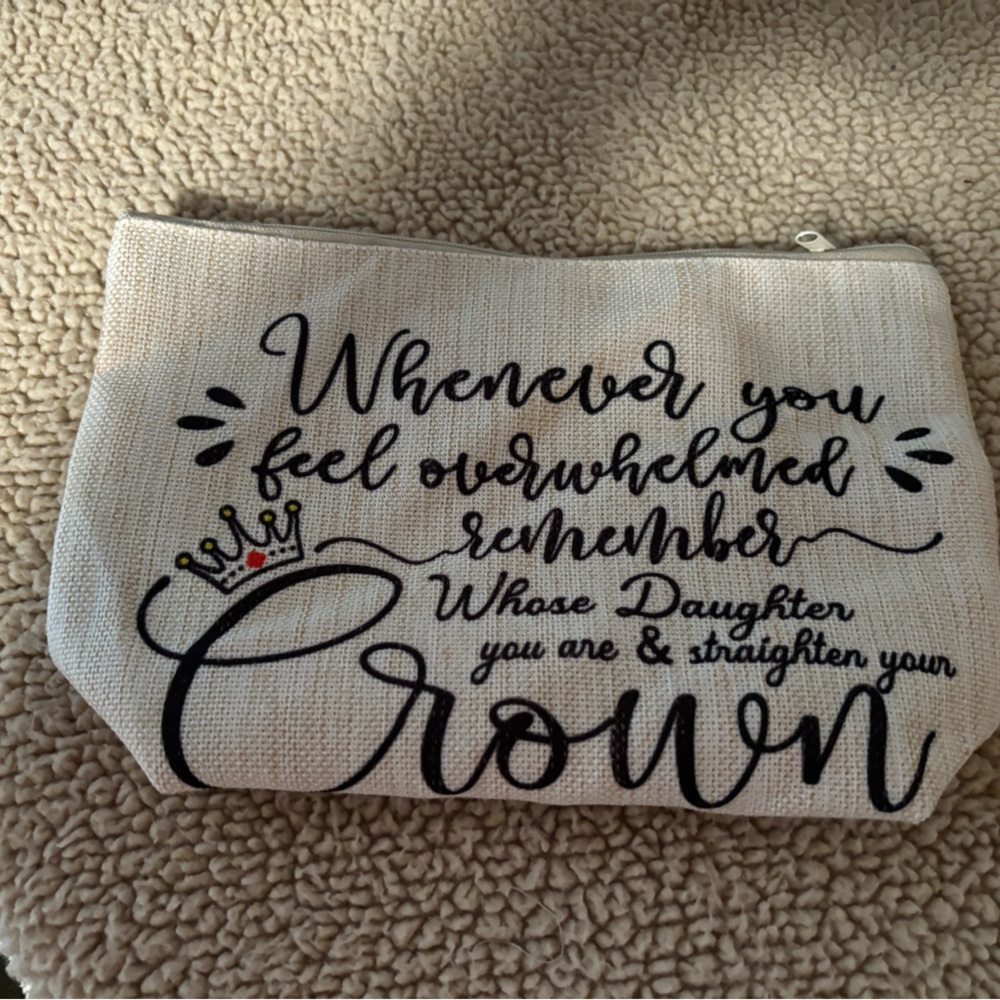 Whenever you
feel overwhelmed
remember
Whose Daughter
you are & straighten your
Crown